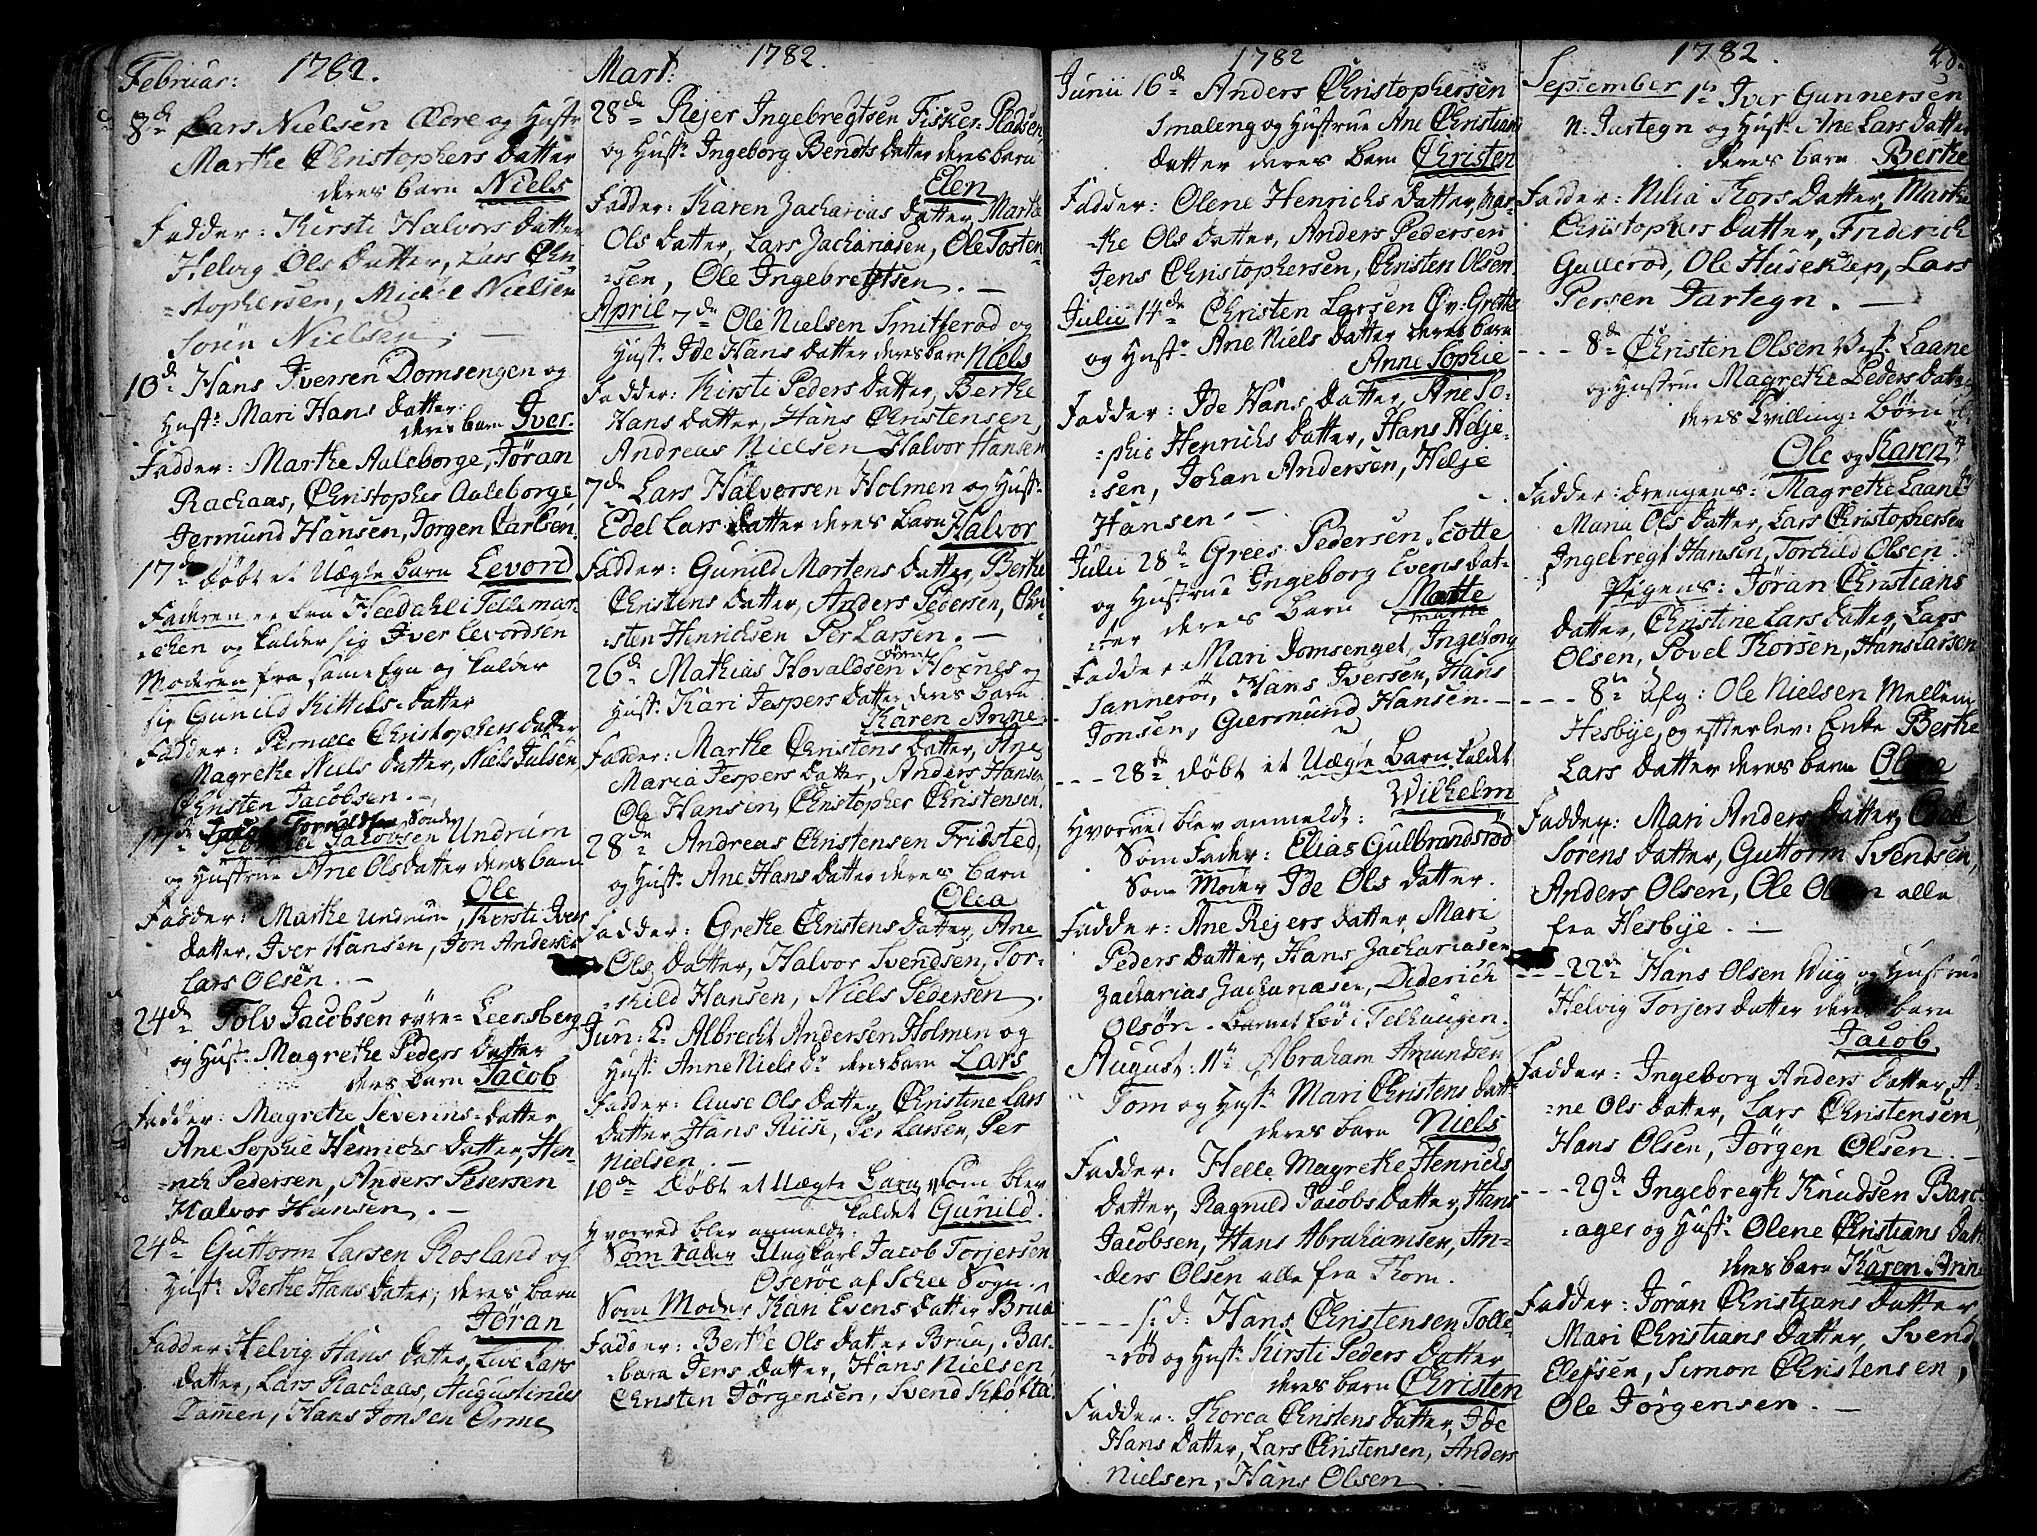 Februar: 1782.
8de Lars Nielsen Ødre og Hustr
Marthe Christophers Datter
deres barn Niels
Fadder: Kirsti Halvors Datter
Helvig Ols Datter, Lars Chri
=stophersen, Michel Nielsen
Sørn Nielsen.
10de Hans Iversen Domsengen og
Hust: Mari Hans Datter
deres barn Iver.
Fadder: Marthe Aaleborge, Jøran
Rachaas, Christopher Aaleborge
Jermund Hansen, Jørgen Carlsen.
17de døbt et Uægte barn Levord
Faderen er fra Hedahl i Tellemar
=cken og kalder sig Iver Levordsen
Moderen fra same Egn og kalder
sig Gunild Kittels=datter
Fadder: Pernille Christophersdatter
Magrethe Niels Datter, Niels Julsen,
Christen Jacobsen.
17de Jacobsen Undrum
og Hustrue Ane Olsdatter deres barn
Ole
Fadder: Marthe Undrum, Kirsti Ivers
datter, Iver Hansen, Jon Andersen
Lars Olsen.
24de Tolv Jacobsen øvre=Leensberg
og Hust: Magrethe Peders Datter
deres barn Jacob
Fadder: Magrethe Severins=datter
Ane Sophie Henrichs Datter, Hen=
=rich Pedersen, Anders Pedersen
Halvor Hansen.
24de Guttorm Larsen Rosland og
Hust: Berthe Hans Dater, deres barn
Jøran
Fadder Helvig Hans datter, Live Lars
datter, Lars Rachaas, Augustinus
Tamen, Hans Jonsen Orme
Mart: 1782.
28de Rejer Ingebregtsen Fisker=Pladsen
og Hust: Ingeborg Bendts Datter deres barn
Elen
Fadder: Karen Zacharias Datter, Marthe
Ols Datter, Lars Zachariasen, Ole Tosten
=sen, Ole Ingebregtsen.
April 7de Ole Nielsen Smitsrød og
Hust: Ide Hans Datter deres barn Niels
Fadder: Kirsti Peders Datter, Berthe
Hans datter, Hans Christensen
Andreas Nielsen Halvor Hansen
7de Lars Halvorsen Holmen og Hust:
Edel Lars Datter deres barn Halvor
Fadder: Gunild Mortens Datter, Berthe
Christens Datter, Anders Pedersen, Chri
=sten Henrichsen Per Larsen.
26de Mathias Hovaldsen Hoxnes og
Hust: Kari Jespers Datter deres barn
Karen Anne.
Fadder: Marthe Christens Datter, Ane
Maria Jespers Datter, Anders Hansen
Ole Hansen, Christopher Christensen.
28de Andreas Christensen Fridsted,
og Hust: Ane Hans Datter deres barn
Olea
Fadder: Grethe Christens Datter, Ane
Ols Datter, Halvor Svendsen, Tor=
=kild Hansen, Niels Pedersen.
Jun: 2de Albrecht Andersen Holmen og
Hust: Anne Niels Dr. deres barn Lars
Fadder: Ause Ols Datter, Christine Lars
Datter, Hans Ruse, Per Larsen, Per
Nielsen.
10de Døbt et Uægte barn, som blev
kaldet Gunild.
Hvorved blev anmeldt:
Som Fader Ungkarl Jacob Torjersen
Oserøe af Schee Sogn.
Som Moder Kari Evens Datter Brua
Fadder: Berthe Ols Datter Brua, Bar=
=bara Jens Datter, Hans Nielsen
Christen Jørgensen, Svend Kløfta.
1782
Junii 16de Anders Christophersen
Smaleng og Hustrue Ane Christians
Datter deres barn Christen
Fadder: Olene Henrichs Datter, Mar=
=the Ols Datter, Anders Pedersen
Jens Christophersen, Christen Olsen.
Julii 14de Christen Larsen Qv: Grethe
og Hust: Ane Niels Datter deres barn
Anne Sophie
Fadder: Ide Hans Datter, Ane So=
=phie Henrichs Datter, Hans Helje=
=sen, Johan Andersen, Helje
Hansen.
Julii 28de Grees Pedersen Scotte
og Hustrue Ingeborg Evens Dat=
=ter deres barn Marte
Marthe
Fadder: Mari Domsenget, Ingeborg
Sannerø, Hans Iversen, Hans
Jonsen, Giermund Hansen.
---28de døbt et Uægte barn kaldet
Wilhelm
Hvorved blev anmeldt:
Som Fader: Elias Gulbrandsrød
Som Moder Ide Ols Datter.
Fadder: Ane Rejers Datter, Mari
Peders Datter, Hans Zachariasen
Zacharias Zachariasen, Diderich
Olsøn. Barnet fød i Telhaugen.
August: 11te Abraham Amundsen
Tom og Hust: Mari Christens Datt
deres barn Niels
Fadder: Helle Magrethe Henrichs
Datter, Ragnild Jacobs Datter, Hans
Jacobsen, Hans Abrahamsen, An=
=ders Olsen alle fra Thom.
---- s: d: Hans Christensen Tolle=
=rød og Hust: Kirsti Peders Datter
deres barn Christen
Fadder: Thorea Christens Datter, Ide
Hans Datter, Lars Christensen, Anders
Nielsen, Hans Olsen.
1782. 48.
September 1te Iver Gunnersen
N: Jartegn og Hust: Ane Lars Datter
deres barn Berthe
Fadder: Nilia Thors Datter, Marthe
Christophers Datter, Friderich
Gullerød, Ole Huseklep, Lars
Persen Jartegn.
---- 8de Christen Olsen Vest: Laane
og Hustrue Magrethe Peders Datter
deres Tvilling: Børn
Ole og Karen
Fadder: Drengens: Magrethe Laane
Maria Ols Datter, Lars Christophersen
Ingebregt Hansen, Torchild Olsen.
Pigens: Jøran Christians
datter, Christine Lars Datter, Lars
Olsen, Povel Thorsen, Hans Larsen
---- 8de afg: Ole Nielsen Mellem
Hesbye, og efterlev: Enke Berthe
Lars Datter deres barn Olene
Fadder: Mari Anders Datter,
Sørens Datter, Guttorm Svendsen,
Anders Olsen, Ole Olsen alle
fra Hesbye.
---22de Hans Olsen Wiig og Hustrue
Helvig Torjers Datter deres barn
Jacob.
Fadder: Ingeborg Anders Datter, A=
=ne Ols Datter, Lars Christensen,
Hans Olsen, Jørgen Olsen.
----29de Ingebregth Knudsen Barc=
=ager og Hust: Olene Christians Datt
deres barn Karen Ann
Fadder: Jøran Christians Datter
Mari Christians Datter, Svend
Elefsen, Simon Christensen,
Ole Jørgensen.